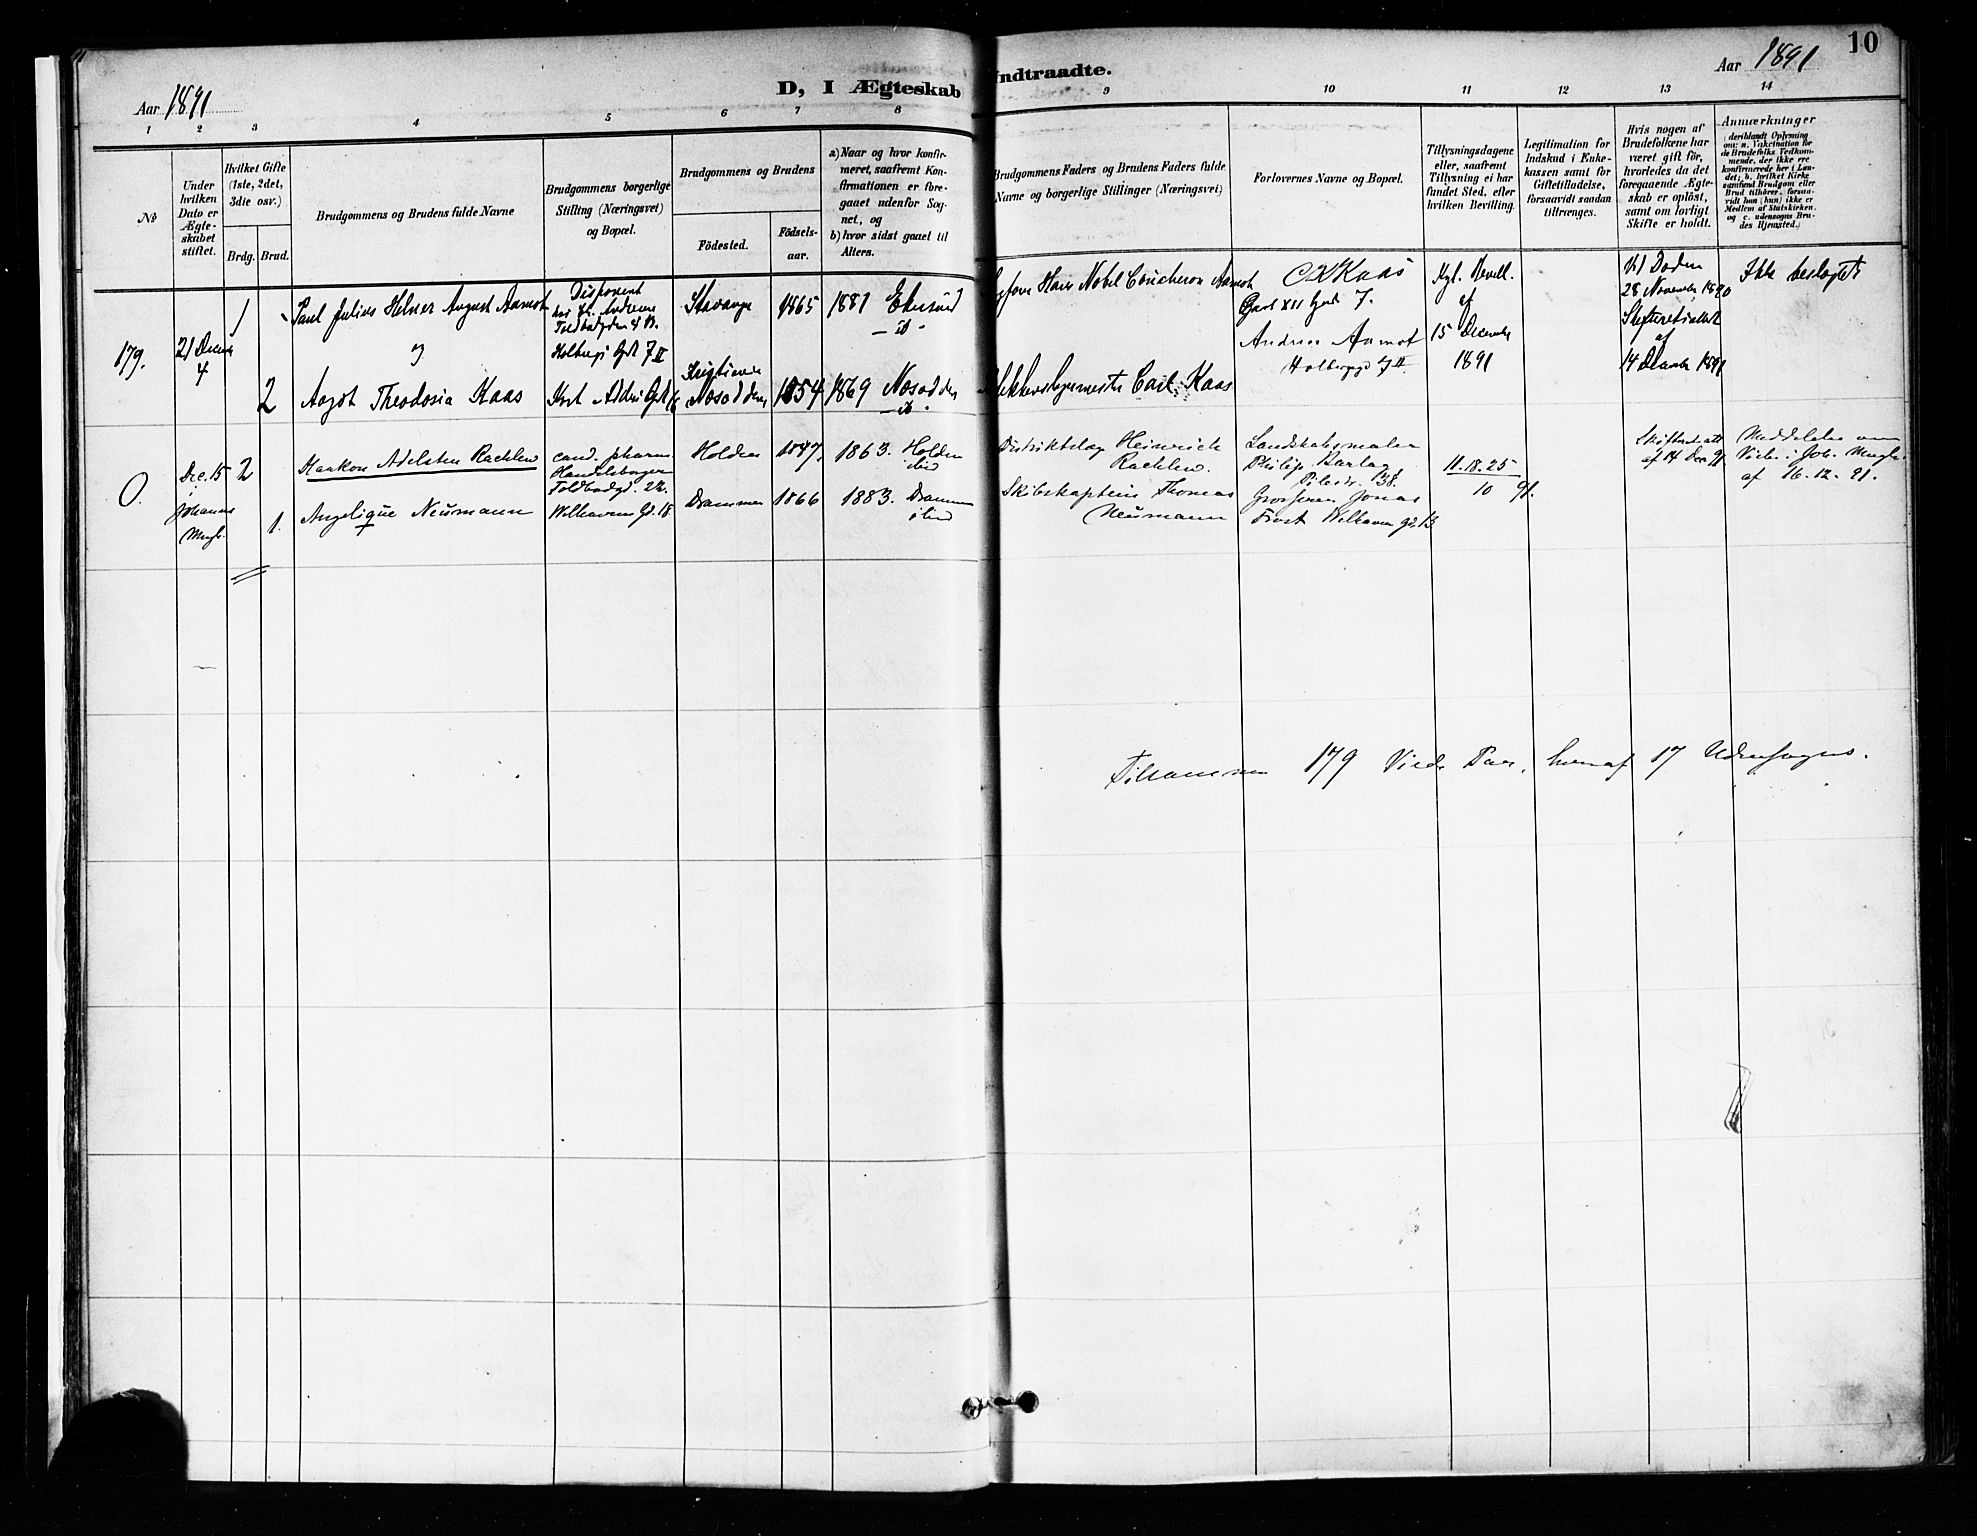 10
Aar 1891
Aar 1891
D, I Ægteskab Indtraadte.
1 2 3 4 5 6 7 8 9 10 11 12 13 14
№
Under hvilken Dato er Ægteskabet stiftet.
Hvilket Gifte (1ste, 2det, 3die osv.)
Brdg. Brud.
Brudgommens og Brudens fulde Navne
Brudgommens borgerlige Stilling (Næringsvei) og Bopæl.
Brudgommens og Brudens
Födested.
Födselsaar.
a) Naar og hvor konfirmeret, saafremt Konfirmationen er foregaaet udenfor Sognet, og
b) hvor sidst gaaet til Alters.
Brudgommens Faders og Brudens Faders fulde Navne og borgerlige Stillinger (Næringsvei)
Forlovernes Navne og Bopæl.
Tillysningsdagene eller, saafremt Tillysning ei har fundet Sted, efter hvilken Bevilling.
Legitimation for Indskud i Enkekassen samt for Giftetilladelse, forsaavidt saadan tiltrænges.
Hvis nogen af Brudefolkene har været gift för, hvorledes da det foregaaende Ægteskab er oplöst, samt om lovligt Skifte er holdt.
Anmærkninger
(deriblandt Oplysning om: a. Vaccination for de Brudefolks Vedkommende, der ikke ere konfirmerede her i Landet; b. hvilket Kirkesamfund Brudgom eller Brud tilhörer, forsaavidt han (hun) ikke er Medlem af Statskirken, og c. udensogns Brudes Hjemsted.)
179.
21 Decemb
4
1
Paul Julius Helmer August Aamot
og
2
Aagot Theodosia Kaas
Disponent
Toldbodgden 4 B.
Holbergs Gd 7 II
Stavanger
1865
1881
Kristiania
Nesodden
1854
1869 Nesodden
Hans Nobel Coucheron Aamot
Carl Kaas
C K Kaas
Carl XII Gade 7.
Andreas Aamot
Holbergsgd 7 II.
Kgl. Bevill.
af
15 December
1891
Ved Döden
28 November 1890
Skifteretsattest
af
14 Decembr 1891
Ikke beslægtede
0.
Dec. 15
i
Johannes
Mengh.
2
Haakon Adelsten Raehlew
1.
Angelique Neumann
cand. pharm.
Handelsborger
Toldbodgd. 22.
Welhavens Gd. 18.
Holden
1847.
1863. Holden
ibid
Drammen
1866
1883. Drammen
ibid
Distriktslæg Heinrich
Raehlew.
Skibskaptein Thomas
Neumann
Landskabsmaler
Philip Barlag
Pilestr. 38.
Grosserer Jonas
Frost Welhavens gd. 13
11. 18. 25
10 91.
Skifteret att
af 14 Dec 91
Meddelelse om
Vielse i Joh. Mengh.
af 16. 12. 91.
Tilsammen 179 Viede Par, hvoraf 17 Udensogns.